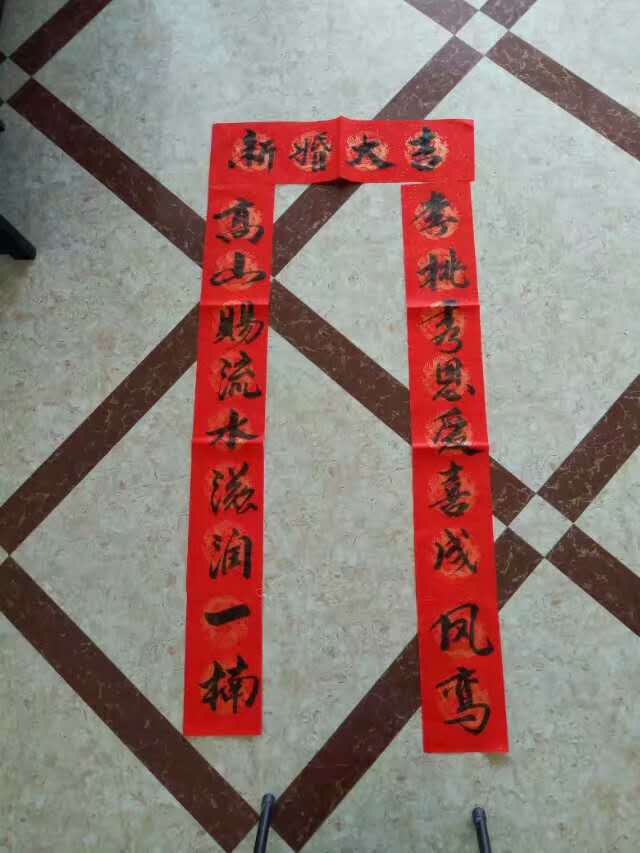 新婚大吉
李桃秀恩爱喜成凤鸾
高山赐流水滋润一楠